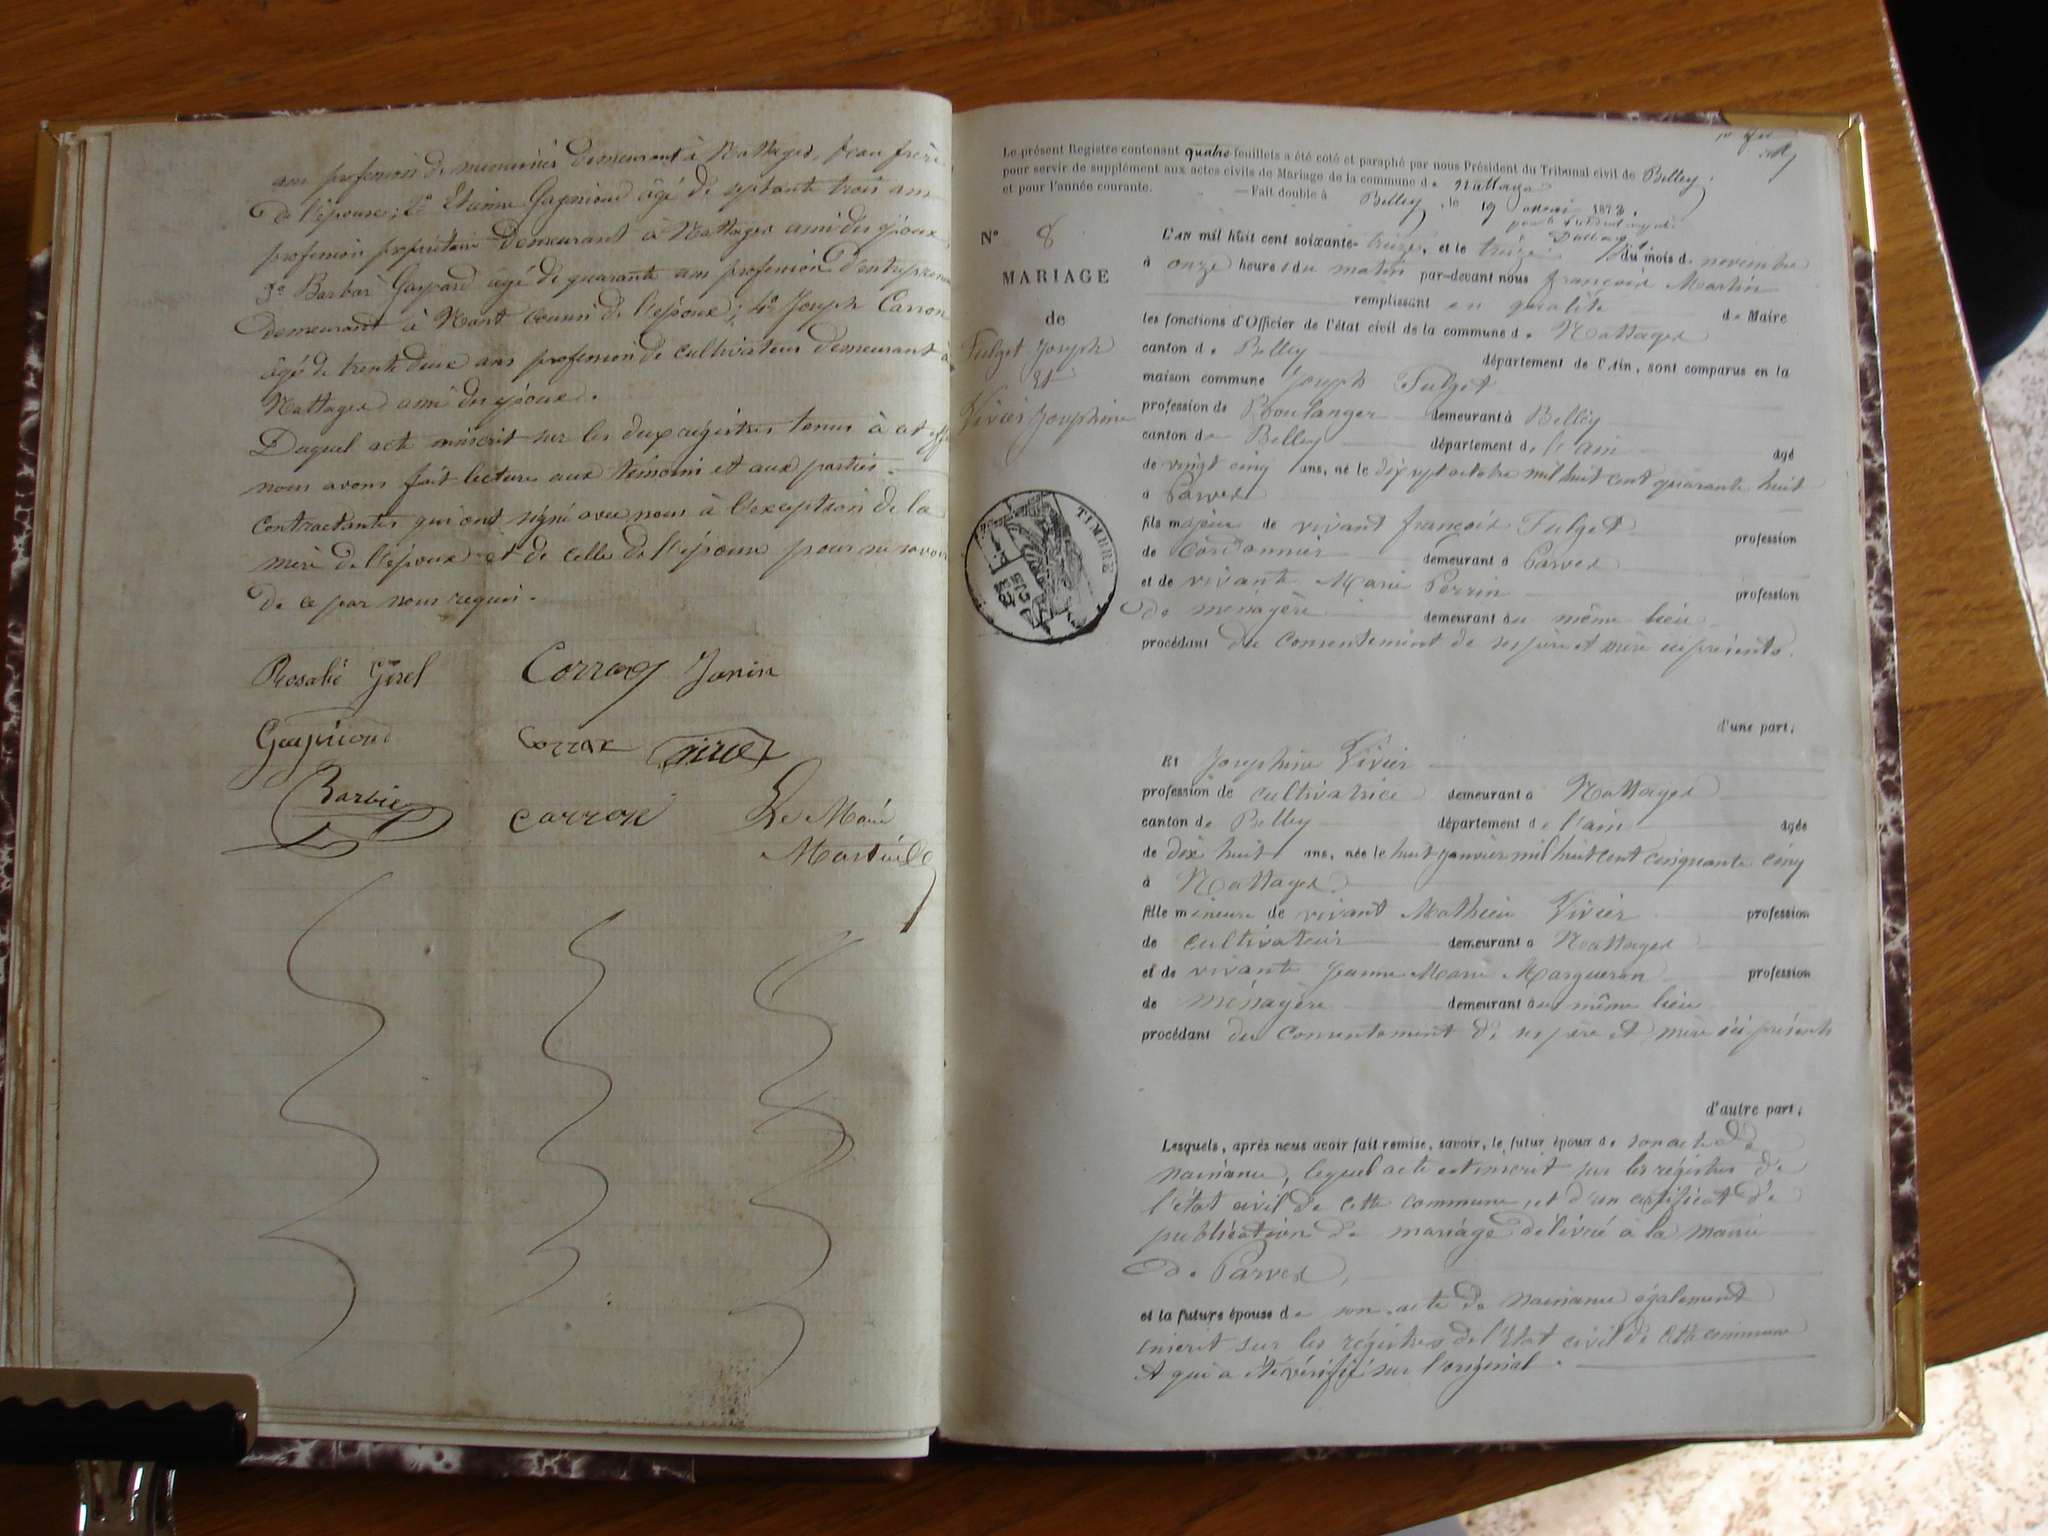 ans profession de menuisier demeurant à Nattages, beau frère
de l'épouse; 2° Etienne Gaspnioud âgé de septante trois ans
profession propriétaire demeurant à Nattages ami des époux,
3° Gaspard âgé de quarante ans profession d'entrepreneur
demeurant à Nant cousin de l'époux; 4° Joseph Carron
âgé de trente deux ans profession de cultivateur demeurant à
Nattages ami des époux.
Duquel acte inscrit sur les deux registres tenus à cet effet
nous avons fait lecture aux témoins et aux parties
contractantes qui ont signé avec nous à l'exception de la
mère de l'époux et de celle de l'épouse pour ne savoir
de ce par nous requis.
Rosalie Girel Janin
Girel
Barbier Carron Le Maire
Martin
Le présent Registre contenant quatre feuillets a été coté et paraphé par nous Président du Tribunal civil de Belley.
pour servir de supplément aux actes civils de Mariage de la commune de Nattages
et pour l'année courante. — Fait double à Belley, le 19 1873
N° 8
MARIAGE
de
Fulget Joseph
et
Vivier Joséphine
TIMBRE
L'an mil huit cent soixante-treize, et le treize du mois de novembre
à onze heures du matin par-devant nous François Martin
remplissant en qualité de Maire
les fonctions d'Officier de l'état civil de la commune de Nattages
canton de Belley département de l'Ain, sont comparus en la
maison commune Joseph Fulget
profession de Boulanger demeurant à Belley
canton de Belley département de l'ain âgé
de vingt cinq ans, né le dix sept octobre mil huit cent quarante huit
à Parves
fils majeur de vivant François Fulget profession
de Cordonnier demeurant à Parves
et de vivante Marie Perrin profession
de ménagère demeurant au même lieu
procédant du consentement de ses père et mère ici présents.
d'une part;
Et Joséphine Vivier
profession de cultivatrice demeurant à Nattages
canton de Belley département de l'ain âgée
de dix huit ans, née le huit janvier mil huit cent cinquante cinq
à Nattages
fille mineure de vivant Mathieu Vivier profession
de cultivateur demeurant à Nattages
et de vivante Jeanne Marie Margueron profession
de ménagère demeurant au même lieu
procédant du consentement de ses père et mère ici présents
d'autre part;
Lesquels, après nous avoir fait remise, savoir, le futur époux de son acte de
naissance, lequel acte est inscrit sur les régistres de
l'état civil de cette commune, et d'un certificat de
publication de mariage délivré à la mairie
de Parves,
et la future épouse de son acte de naissance également
inscrit sur les régistres de l'Etat civil de cette commune
et qui a été vérifié sur l'original.